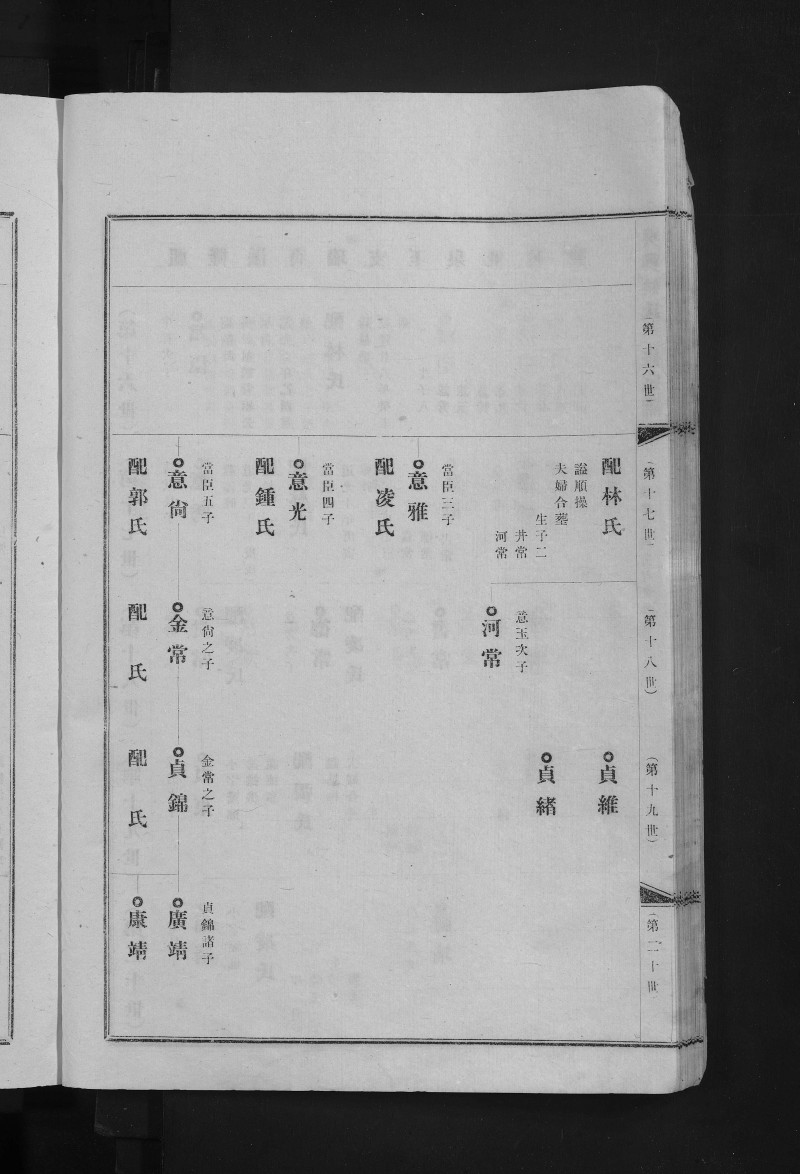 (第十六世)
(第十七世)
(第十八世)
(第十九世)
(第二十世
配林氏
諡順操
夫婦合塟
生子二
井常
河常
當臣三子
意雅
配凌氏
當臣四子
意光
配鍾氏
當臣五子
意尙
配郭氏
意玉次子
河常
意尙之子
金常
配 氏
貞維
貞緒
金常之子
貞錦
配 氏
貞錦諸子
廣靖
康靖